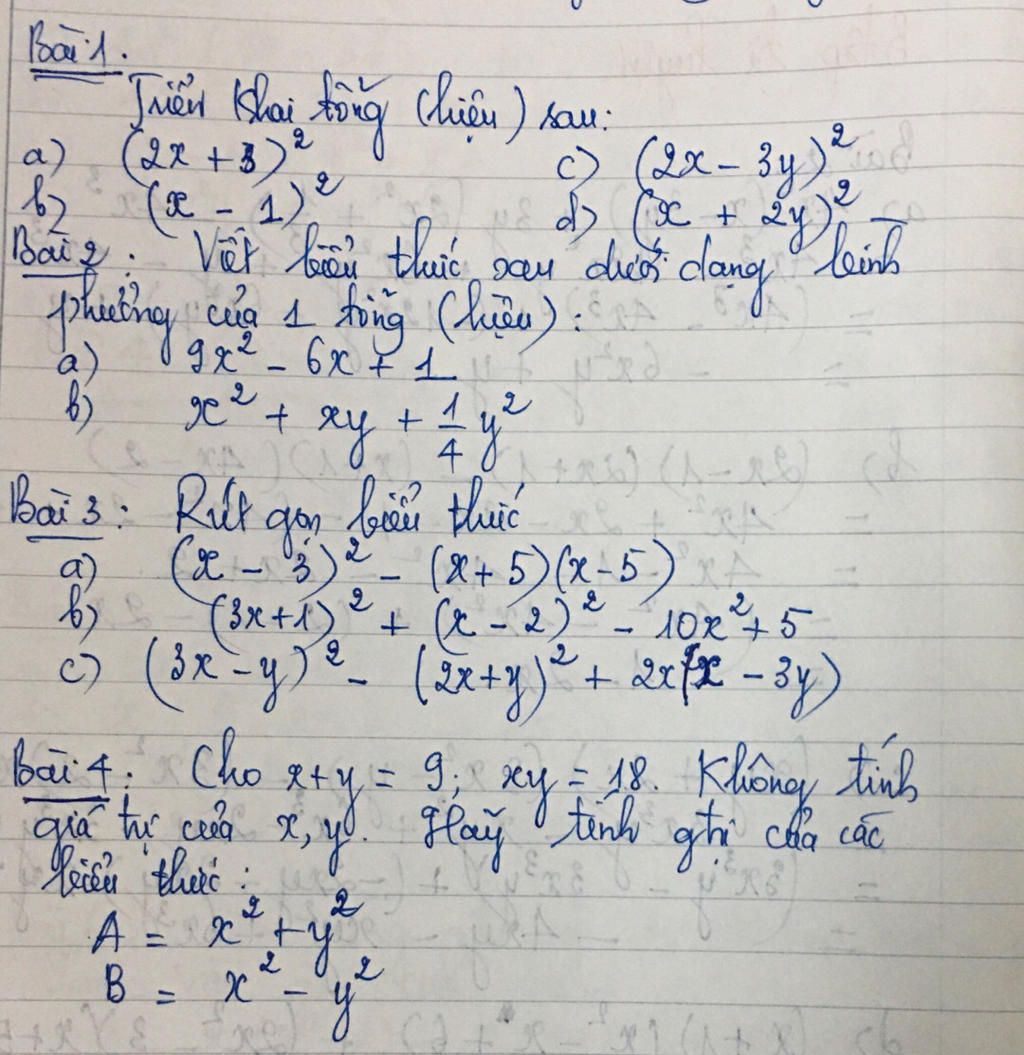 Bài 1.
Triển khai tổng (hiệu) sau:
a) (2x + 3)² c) (2x - 3y)²
b) (x - 1)² d) (x + 2y)²
Bài 2: Viết biểu thức sau dưới dạng bình
phương của 1 tổng (hiệu):
a) 9x² - 6x + 1
b) x² + xy + 1/4 y²
Bài 3: Rút gọn biểu thức
a) (x - 3)² - (x + 5)(x - 5)
b) (3x + 1)² + (x - 2)² - 10x² + 5
c) (3x - y)² - (2x + y)² + 2x(x - 3y)
Bài 4: Cho x + y = 9; xy = 18. Không tính
giá trị của x, y. Hãy tính gtrị của các
biểu thức:
A = x² + y²
B = x² - y²